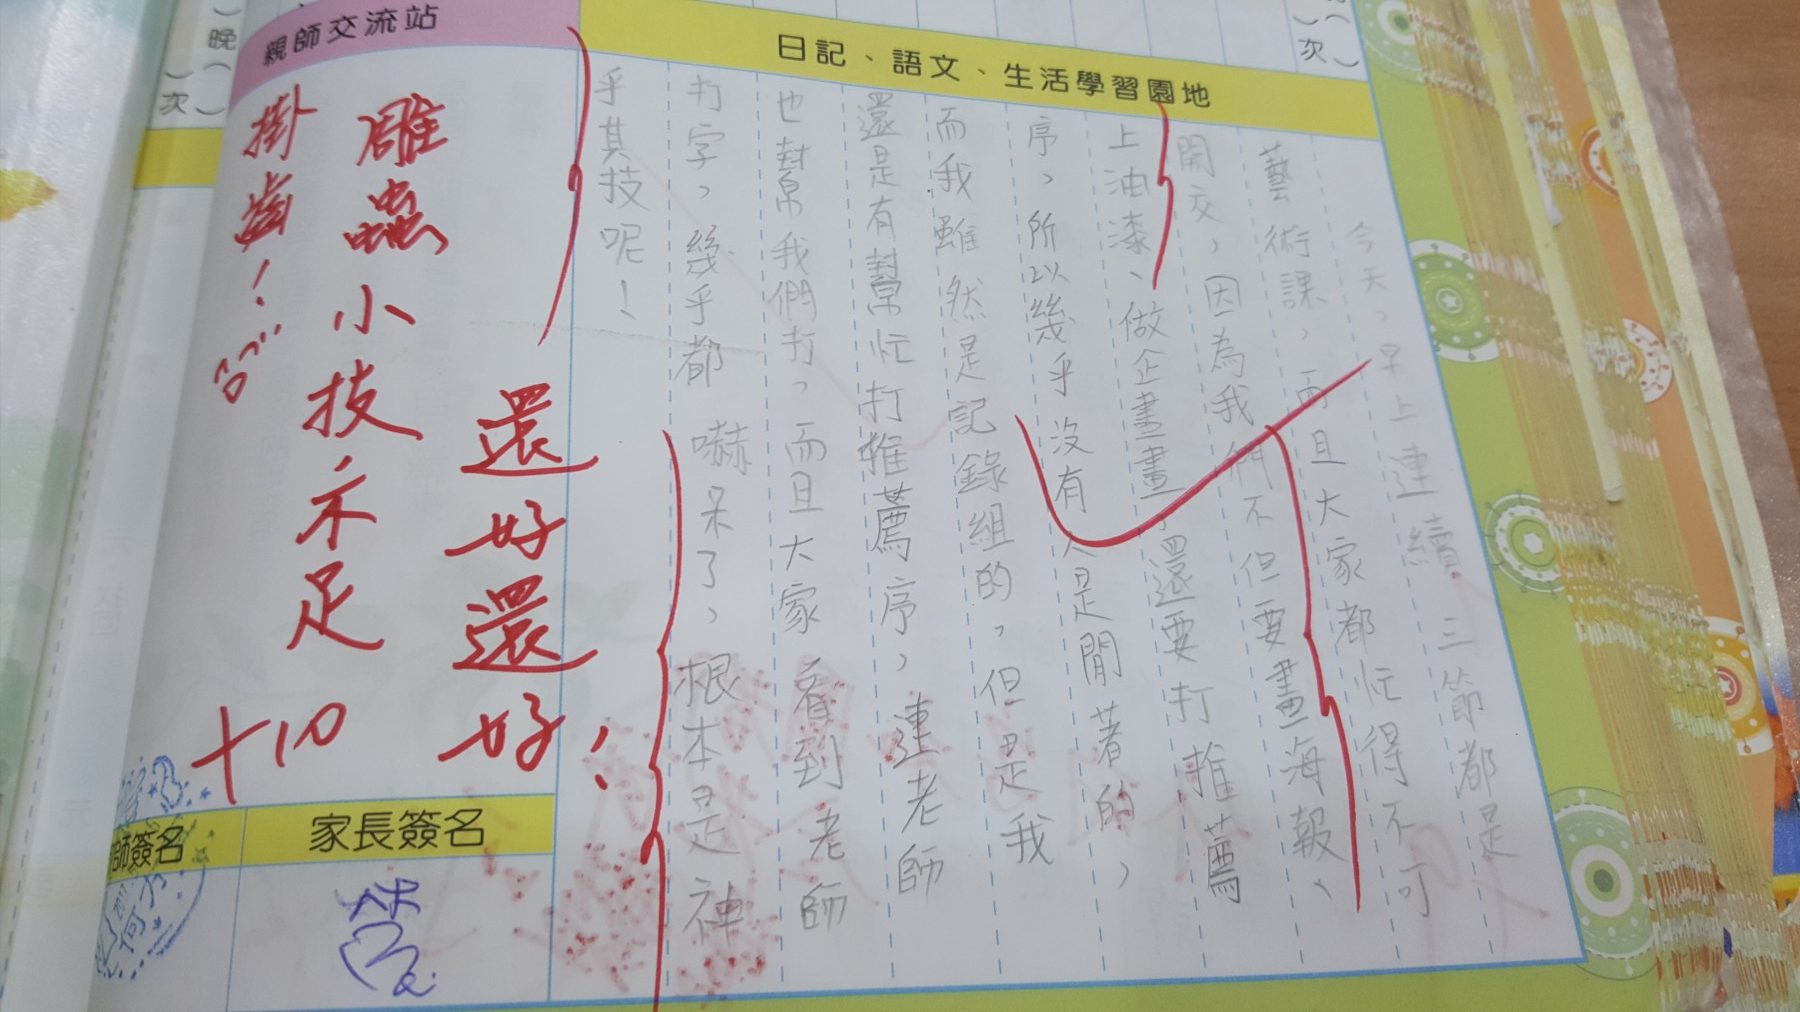 (次)
日記、語文、生活學習園地
今天,早上連續三節都是
藝術課,而且大家都忙得不可
開交,因為我們不但要畫海報、
上油漆、做企畫書,還要打推薦
序,所以幾乎沒有人是閒著的,
而我雖然是記錄組的,但是我
還是有幫忙打推薦序,連老師
也幫我們打,而且大家看到老師
打字,幾乎都嚇呆了,根本是神
乎其技呢!
親師交流站
還好還好!
雕蟲小技不足
掛齒!
+10
家長簽名
師簽名
晚
(次)